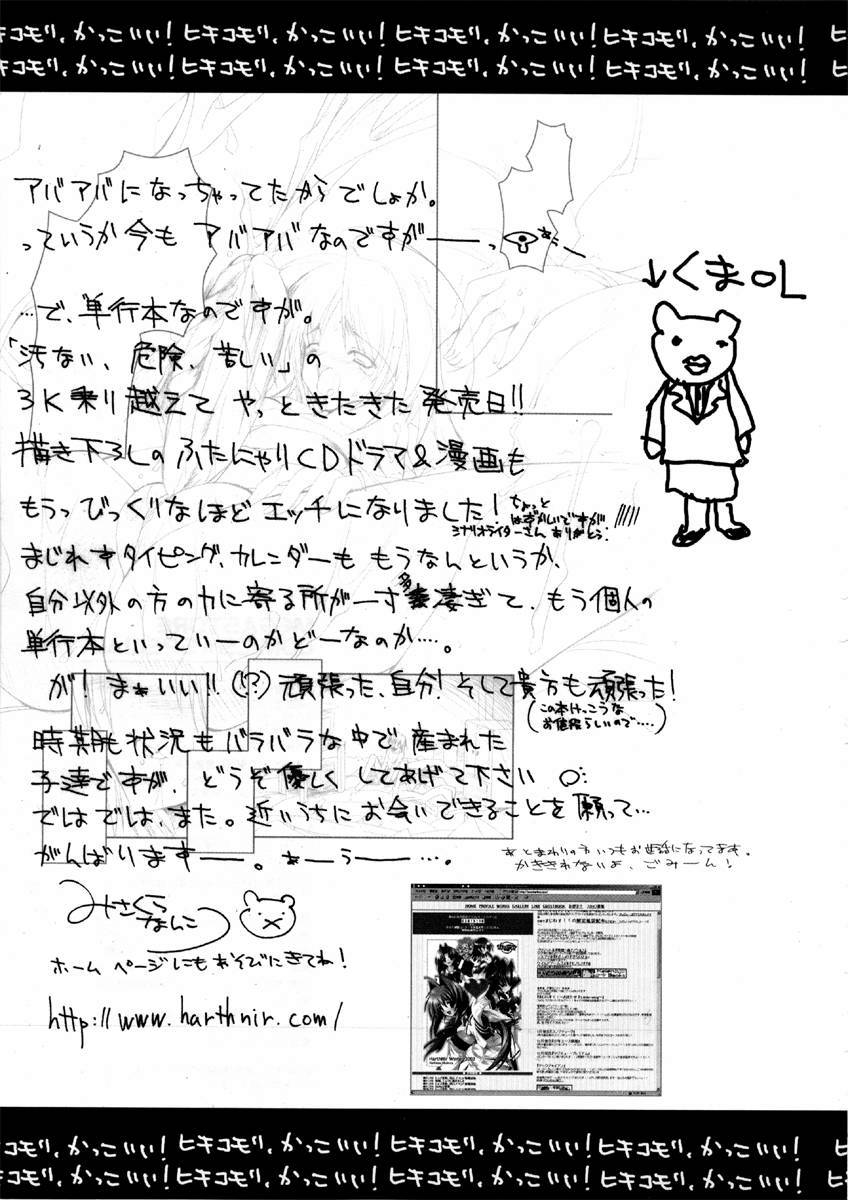 ヒキコモリ、かっこいい!ヒキコモリ、かっこいい!ヒキコモリ、かっこいい!ヒキコモリ、かっこいい! ヒ
ヒキコモリ、かっこいい!ヒキコモリ、かっこいい!ヒキコモリ、かっこいい!ヒキコモリ、かっこいい! ヒ
アバアバになっちゃってたからでしょか。
っていうか今も アバアバなのですがーーっ
あぁ〜
↓くまOL
…で、単行本なのですが。
「汚ない、危険、苦しい」の
3K乗り越えて やっときたきた発売日!!
描き下ろしの ふたにゃりCDドラマ&漫画も
もうっびっくりなほど エッチになりました!
ちょっと
はずかしいですが
シナリオライターさん ありがとう!
まじれすタイピング、カレンダーも もうなんというか、
自分以外の方の力に寄る所が一寸多凄ぎて、もう個人の
単行本といっていーのかどーなのか…。
が! まぁいい!!(!?) 頑張った、自分! そして貴方も頑張った!
(この本けっこうな
お値段らしいので….)
時期も状況もバラバラな中で産まれた
子達ですが、どうぞ優しく してあげて下さい
ではでは、また。近いうちに お会いできることを 願って…
がんばりますーー。あーうーー…。
あとまわりの方いつもお世話になってます。
かききれないよ、ごみーん!
みさくらなんこつ
ホームページにもあそびにきてね!
http://www.harthnir.com/
HOME PROFILE WORKS GALLERY LINK GUESTBOOK
HarthNir Works 2002
ヒキコモリ、かっこいい!ヒキコモリ、かっこいい!ヒキコモリ、かっこいい!ヒキコモリ、かっこいい! ヒ
ヒキコモリ、かっこいい!ヒキコモリ、かっこいい!ヒキコモリ、かっこいい!ヒキコモリ、かっこいい! ヒ